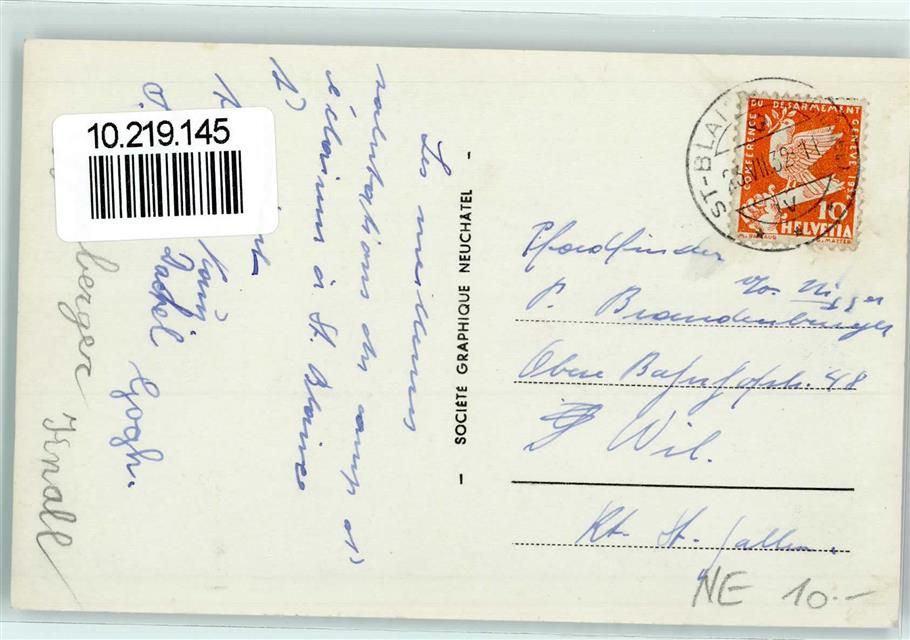 10.219.145
Les meilleures
salutations du camp d'
éclaireurs à St. Blaise
Dachel Gogh.
berger Knall
SOCIÉTÉ GRAPHIQUE NEUCHÂTEL
ST-BLAI
VII.32-11
CONFÉRENCE DU DÉSARMEMENT GENÈVE 1932
10
HELVETIA
Pfadfinder
P. Brandenburger
Obere Bahnhofstr. 48
Wil.
Kt. St. Gallen.
NE 10.--